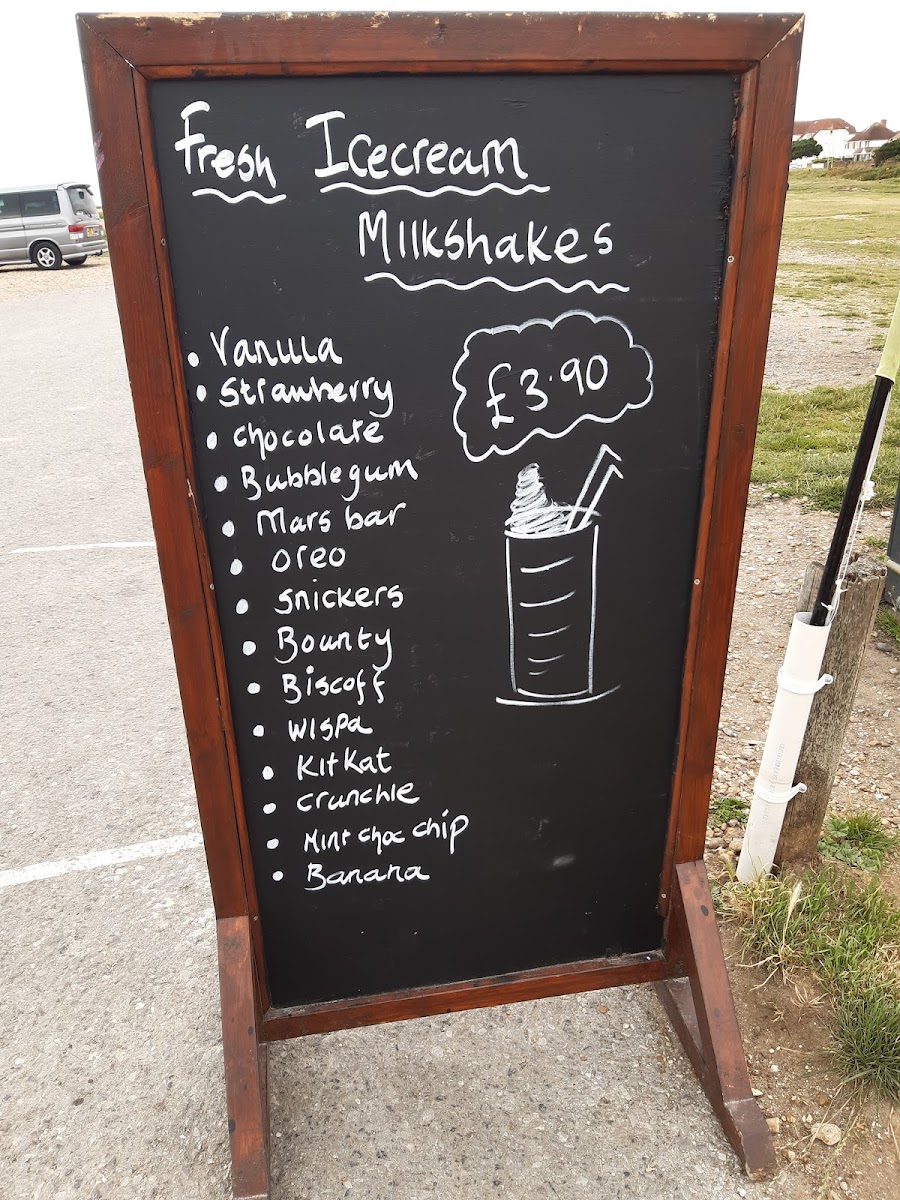 Fresh Icecream
Milkshakes
£3.90
• Vanilla
• Strawberry
• chocolate
• Bubblegum
• Mars bar
• oreo
• snickers
• Bounty
• Biscoff
• wispa
• KitKat
• crunchie
• Mint choc chip
• Banana